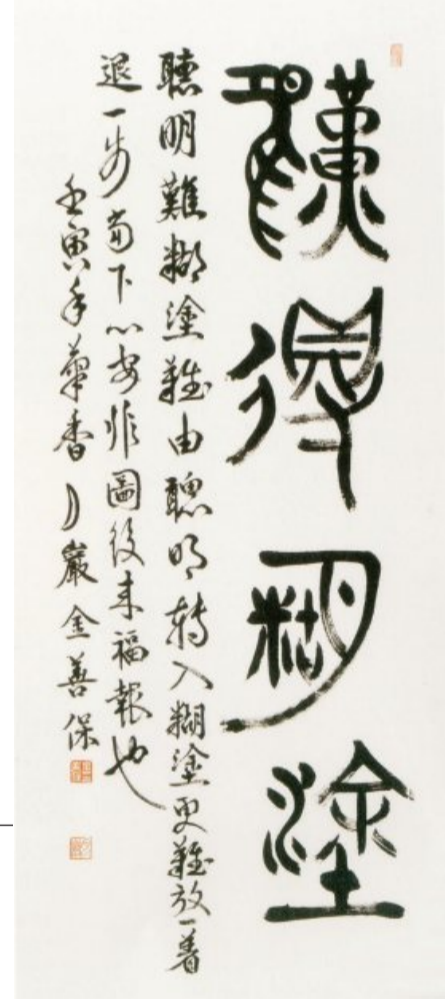 難得糊塗
聰明難糊塗難由聰明轉入糊塗更難放一着
退一步當下心安非圖後來福報也
壬寅年菊香月巖金善保